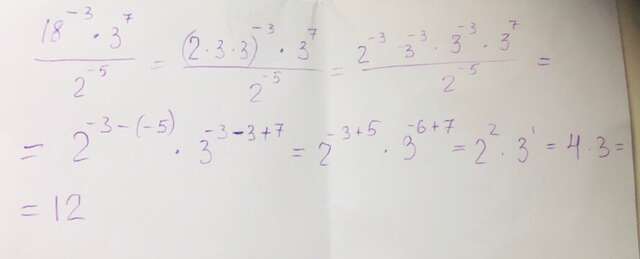 18⁻³ · 3⁷ / 2⁻⁵ = (2 · 3 · 3)⁻³ · 3⁷ / 2⁻⁵ = 2⁻³ · 3⁻³ · 3⁻³ · 3⁷ / 2⁻⁵ =
= 2⁻³⁻⁽⁻⁵⁾ · 3⁻³⁻³⁺⁷ = 2⁻³⁺⁵ · 3⁻⁶⁺⁷ = 2² · 3¹ = 4 · 3 =
= 12